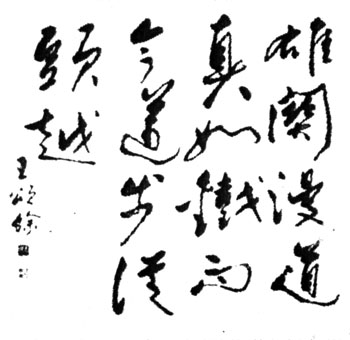 雄關漫道
真如鐵而
今邁步從
頭越
王頌餘